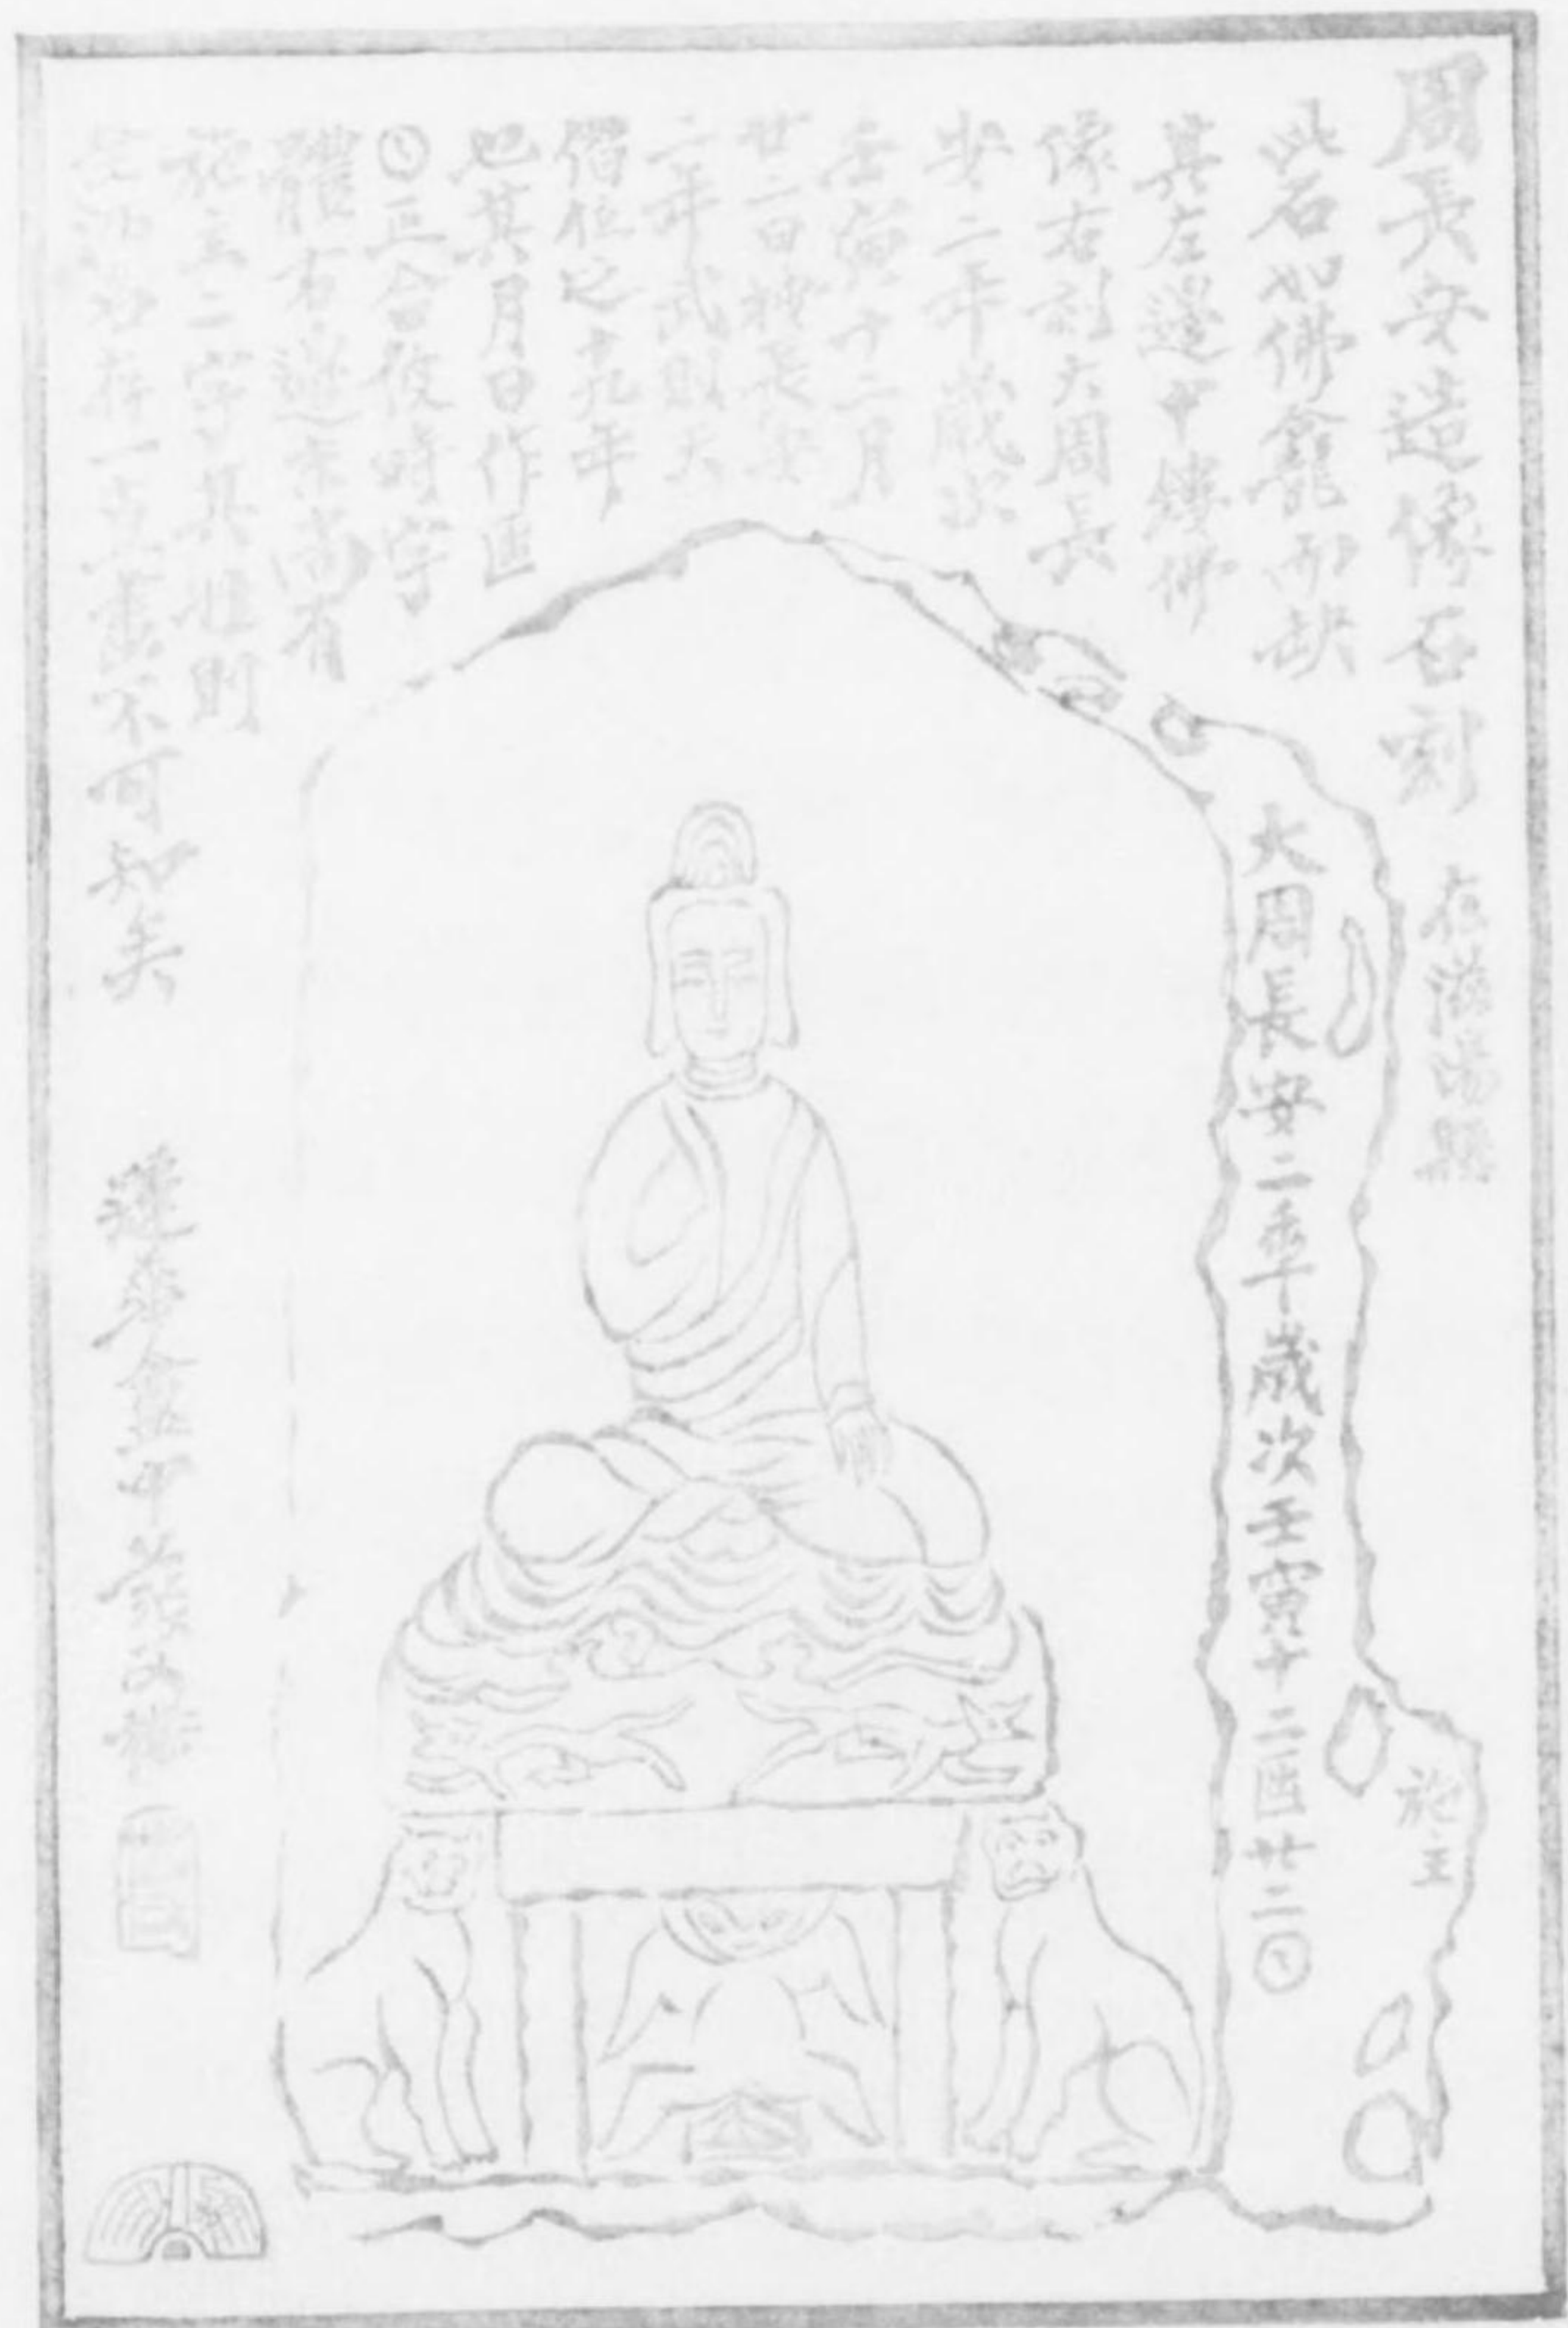 周長安造像石刻 在滋陽縣
此石如佛龕而缺
其左邊中鐫佛
像右刻大周長
安二年歲次
壬寅十二月
廿二日按長安
二年武則天
僭位之十九年
也其月日作𠥱
𡆠正合彼時字
體右邊末尚有
施主二字其姓則
存一不可知矣
蓮華盦
大周長安二年歲次壬寅十二𠥱廿二𡆠
施主